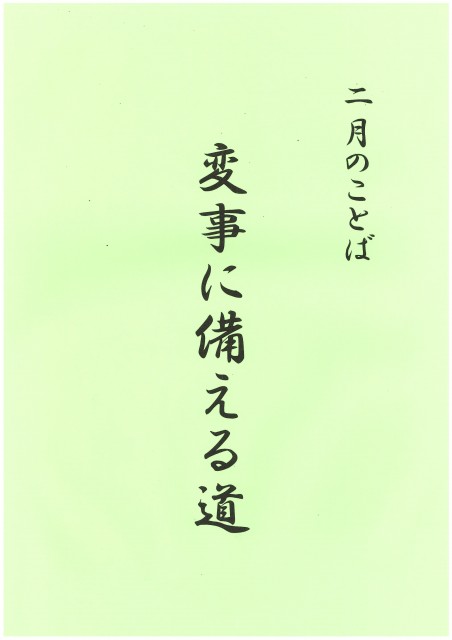 二月のことば
変事に備える道